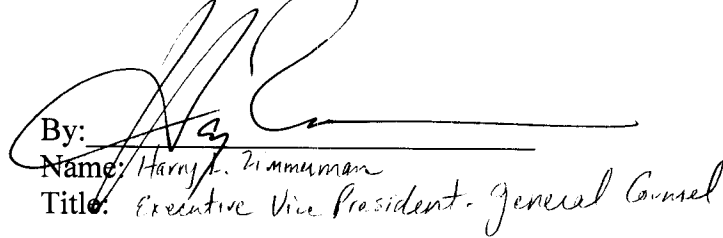 By:
Name: Harry L. Zimmerman
Title: Executive Vice President - General Counsel